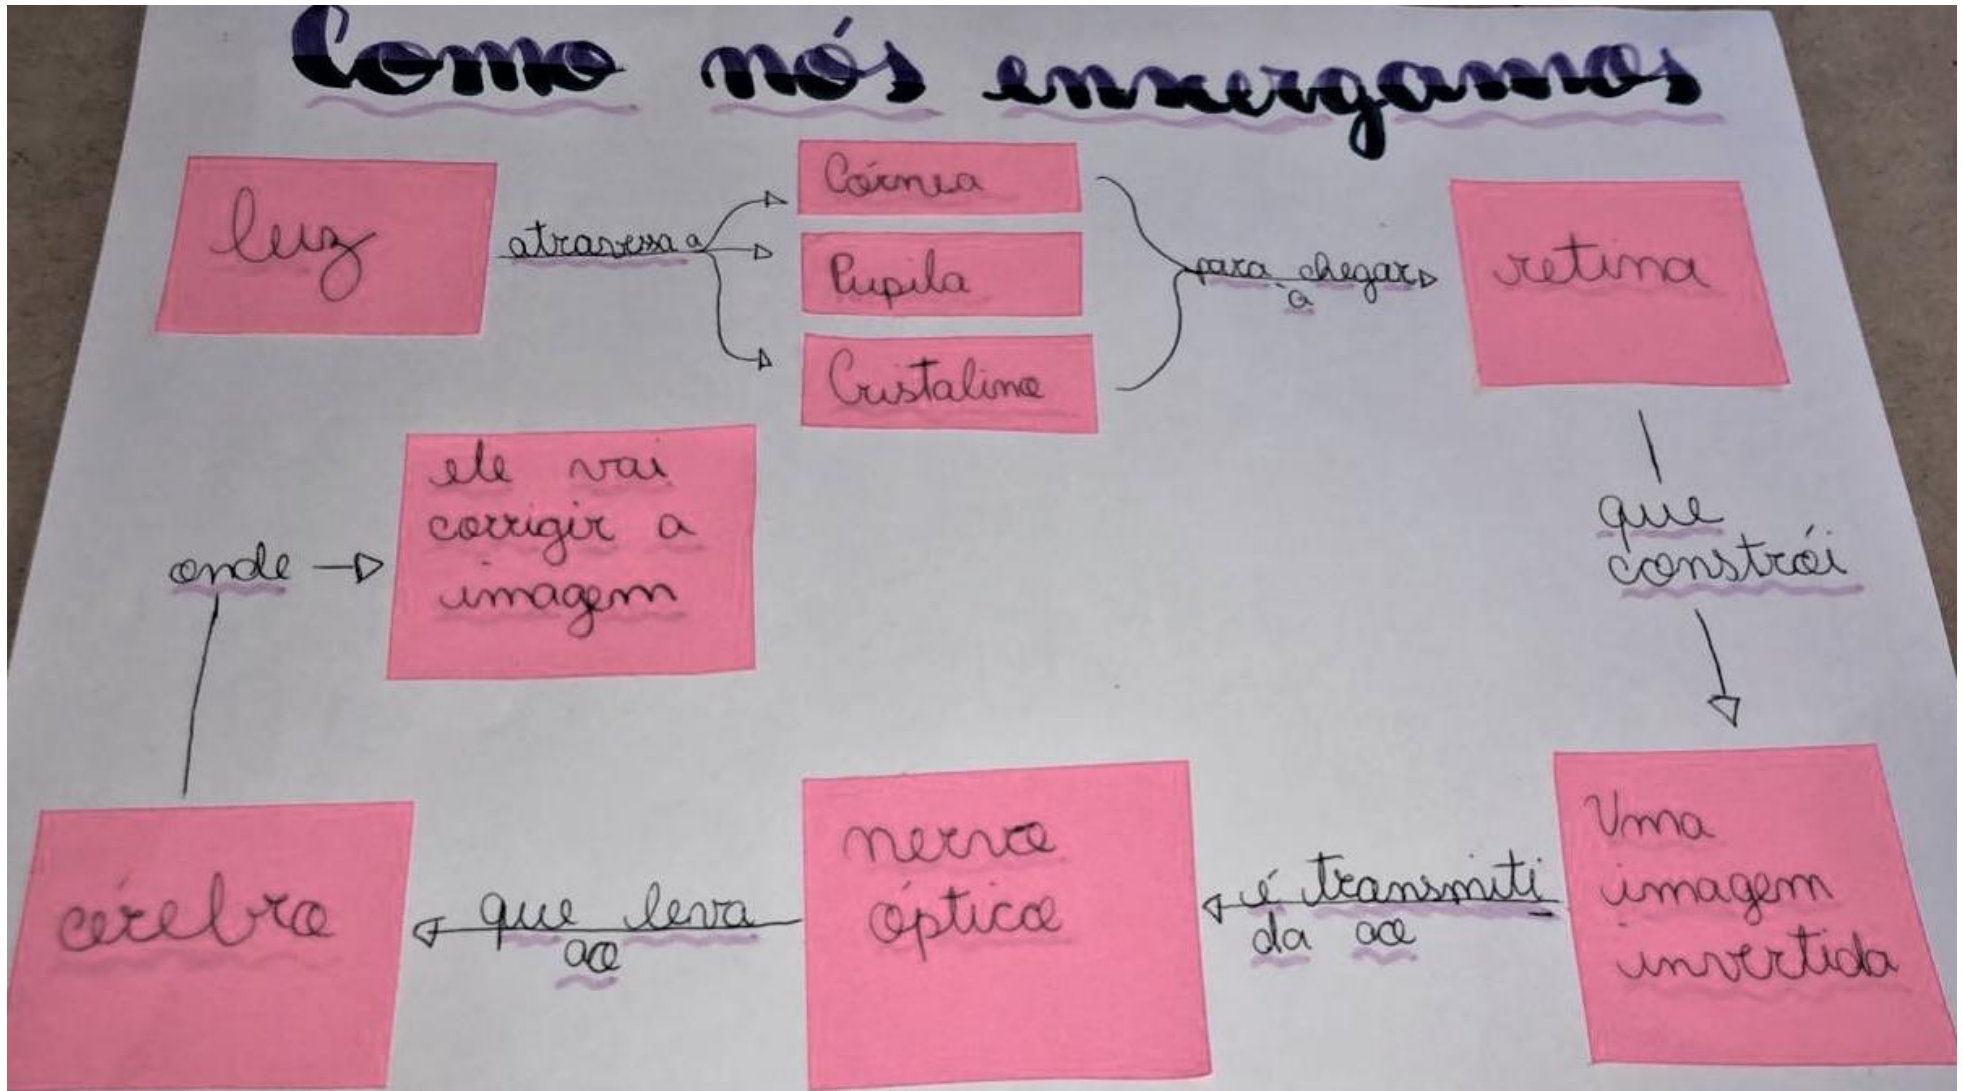 Como nós enxergamos
luz
atravessa a
Córnea
Pupila
Cristalino
para chegar
à
retina
que
constrói
Uma
imagem
invertida
é transmiti
da ao
nervo
óptico
que leva
ao
cérebro
onde
ele vai
corrigir a
imagem